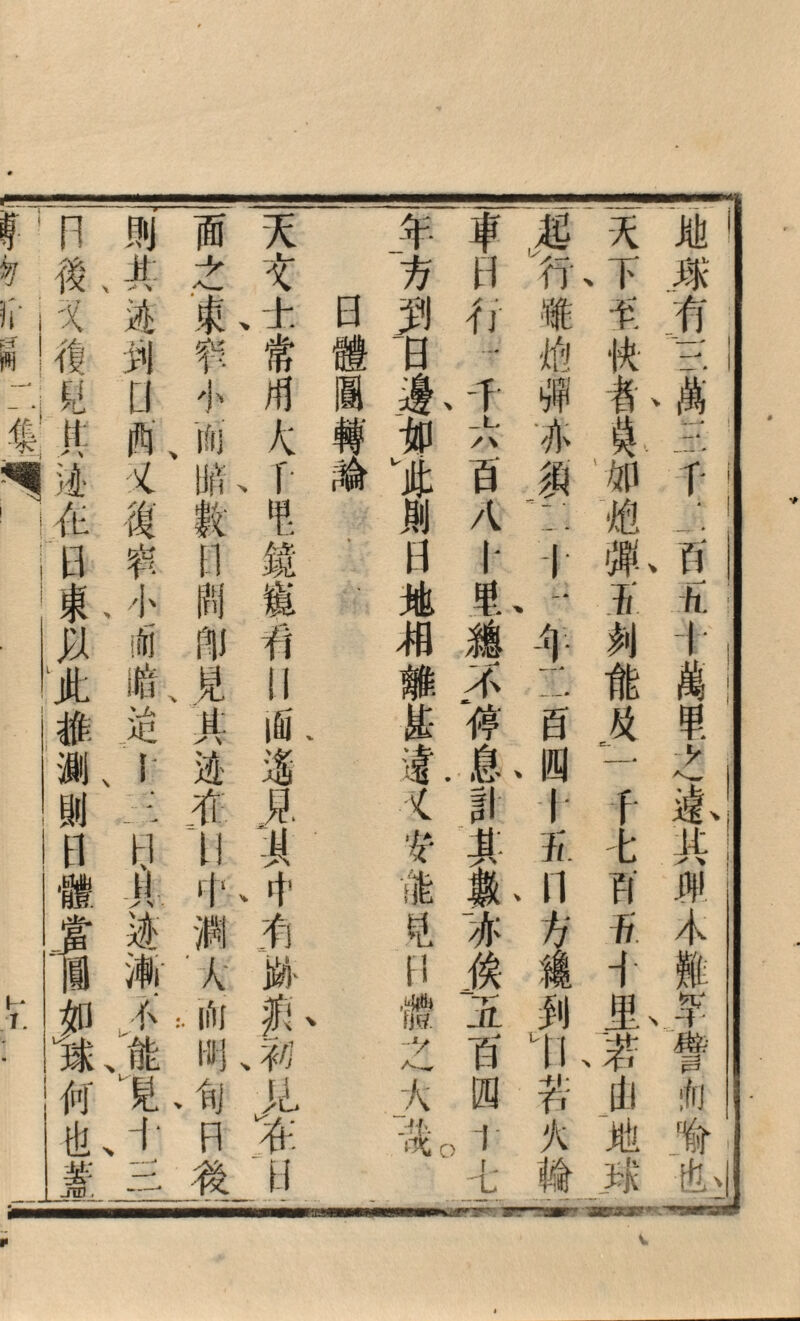 地球有三萬三千二百五十萬里之遠、其理本難罕譬而喻也、
天下至快者、莫如炮彈、五刻能及一千七百五十里、若由地球
起行、雖炮彈亦須二十一年二百四十五日方纔到日、若火輪
車日行一千六百八十里、總不停息、計其數、亦俟五百四十七
年方到日邊、如此則日地相離甚遠、又安能見日體之大哉。
日體圓轉論
天文士常用大千里鏡窺看日面、遙見其中有跡痕、初見在日
面之東、窄小而暗、數日間卽見其迹在日中、濶大而明、旬日後
則其迹到日西、又復窄小而暗、迨十三日、其迹漸不能見、十三
日後、又復見其迹在日東、以此推測、則日體當圓如球、何也、蓋
博物新編二集